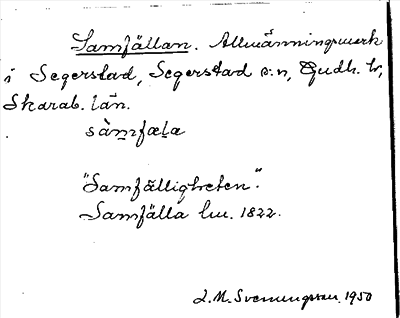 Samfällan. Allmänningsmark
i Segerstad, Segerstad s:n, Gudh. hd,
Skarab. län.
sàmfæla
"Samfälligheten".
Samfälla lm. 1822.
J. M. Svenungsson. 1950